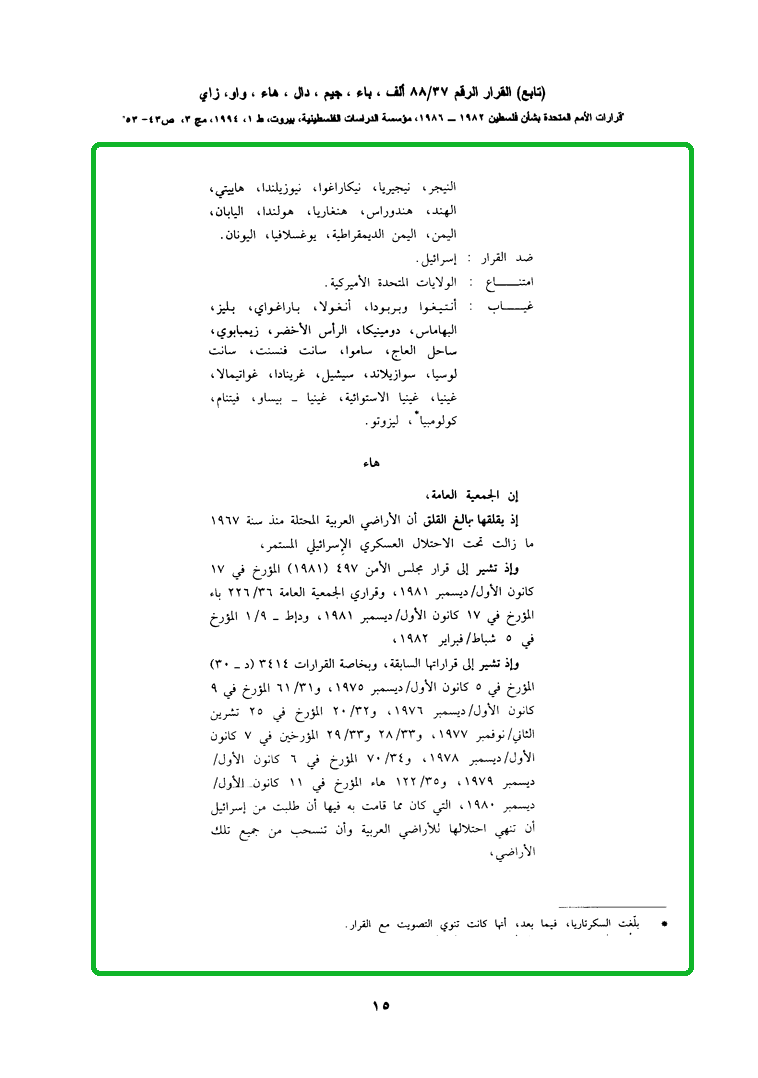 (تابع) القرار الرقم ٨٨/٣٧ ألف ، باء ، جيم ، دال ، هاء ، واو، زاي
قرارات الأمم المتحدة بشأن فلسطين ١٩٨٢ ــ ١٩٨٦، مؤسسة الدراسات الفلسطينية، بيروت، ط ١، ١٩٩٤، مج ٣، ص٤٣- ٥٣.
النيجر، نيجيريا، نيكاراغوا، نيوزيلندا، هاييتي،
الهند، هندوراس، هنغاريا، هولندا، اليابان،
اليمن، اليمن الديمقراطية، يوغسلافيا، اليونان.
ضد القرار : إسرائيل.
امتنـــــاع : الولايات المتحدة الأميركية.
غيـــــاب : أنتيغوا وبربودا، أنغولا، باراغواي، بليز،
البهاماس، دومينيكا، الرأس الأخضر، زيمبابوي،
ساحل العاج، ساموا، سانت فنسنت، سانت
لوسيا، سوازيلاند، سيشيل، غرينادا، غواتيمالا،
غينيا، غينيا الاستوائية، غينيا ـ بيساو، فيتنام،
كولومبيا*، ليزوتو.
هاء
إن الجمعية العامة،
إذ يقلقها بالغ القلق أن الأراضي العربية المحتلة منذ سنة ١٩٦٧
ما زالت تحت الاحتلال العسكري الإسرائيلي المستمر،
وإذ تشير إلى قرار مجلس الأمن ٤٩٧ (١٩٨١) المؤرخ في ١٧
كانون الأول/ديسمبر ١٩٨١، وقراري الجمعية العامة ٢٢٦/٣٦ باء
المؤرخ في ١٧ كانون الأول/ديسمبر ١٩٨١، ودإط ـ ١/٩ المؤرخ
في ٥ شباط/فبراير ١٩٨٢،
وإذ تشير إلى قراراتها السابقة، وبخاصة القرارات ٣٤١٤ (د ـ ٣٠)
المؤرخ في ٥ كانون الأول/ديسمبر ١٩٧٥، و٦١/٣١ المؤرخ في ٩
كانون الأول/ديسمبر ١٩٧٦، و٢٠/٣٢ المؤرخ في ٢٥ تشرين
الثاني/نوفمبر ١٩٧٧، و٢٨/٣٣ و٢٩/٣٣ المؤرخين في ٧ كانون
الأول/ديسمبر ١٩٧٨، و٧٠/٣٤ المؤرخ في ٦ كانون الأول/
ديسمبر ١٩٧٩، و١٢٢/٣٥ هاء المؤرخ في ١١ كانون الأول/
ديسمبر ١٩٨٠، التي كان مما قامت به فيها أن طلبت من إسرائيل
أن تنهي احتلالها للأراضي العربية وأن تنسحب من جميع تلك
الأراضي،
* بلّغت السكرتاريا، فيما بعد، أنها كانت تنوي التصويت مع القرار.
١٥